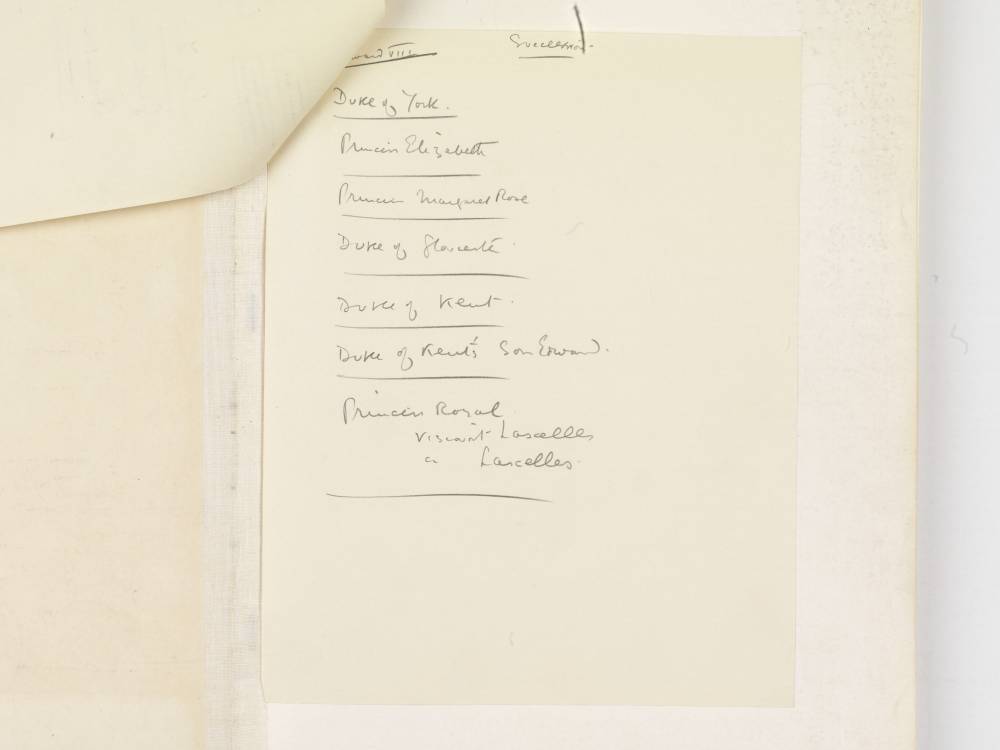 ward VIII Succession.
Duke of York.
Princess Elizabeth
Princess Margaret Rose
Duke of Gloucester
Duke of Kent.
Duke of Kent's Son Edward.
Princess Royal
Viscount Lascelles
Lascelles.